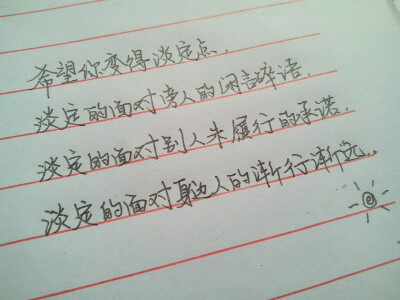 希望你变得淡定点.
淡定的面对旁人的闲言碎语.
淡定的面对别人未履行的承诺.
淡定的面对身边人的渐行渐远..